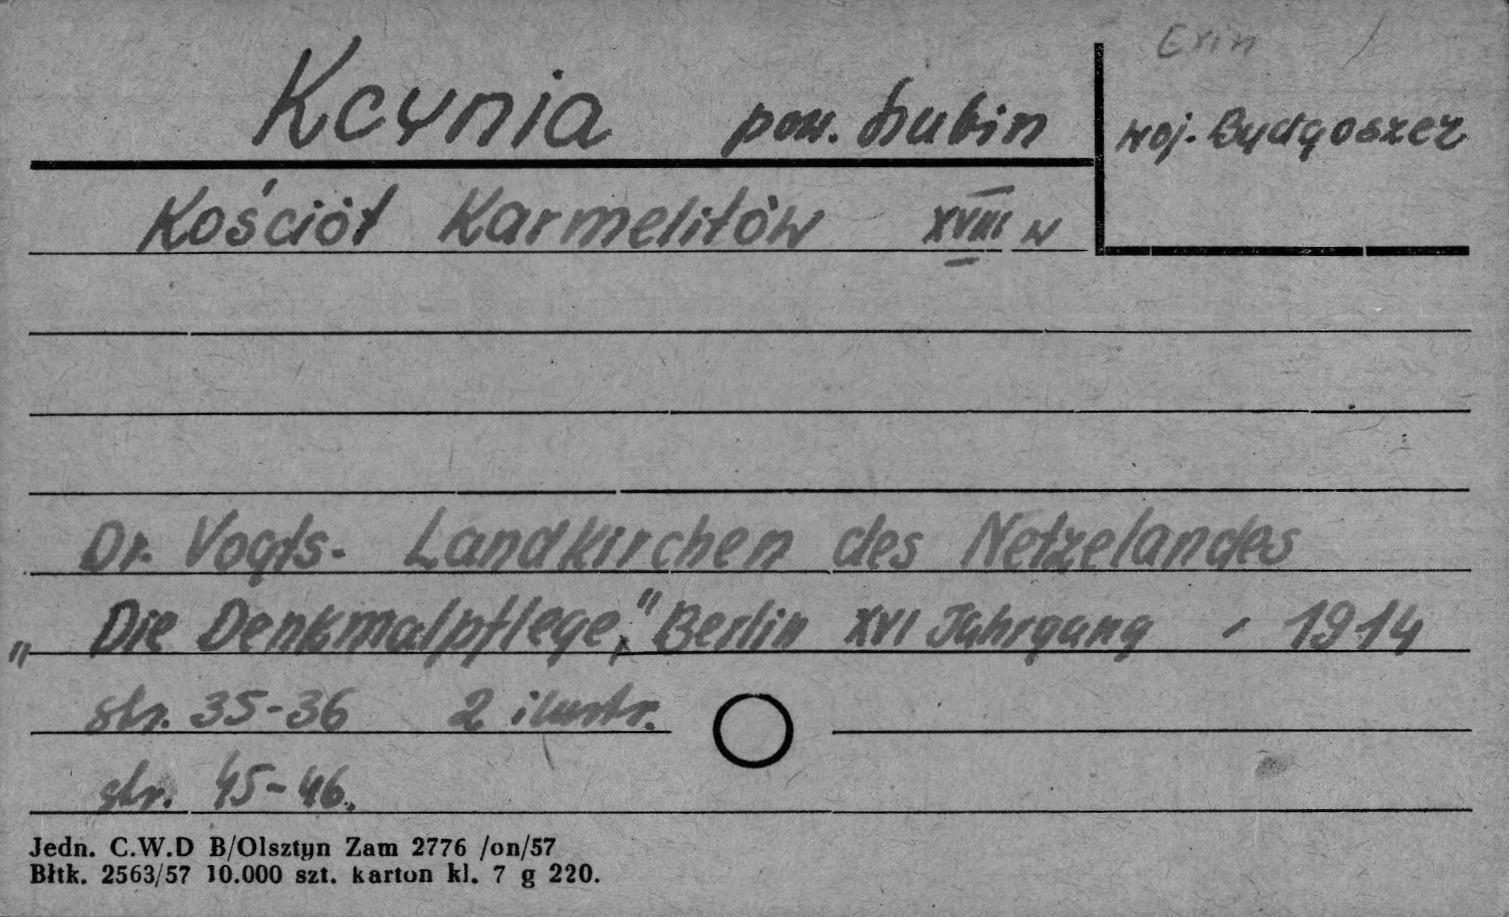 Exin
Kcynia pow. Szubin
woj. Bydgoszcz
Kościół Karmelitów XVIII w
Dr. Vogts. Landkirchen des Netzelandes
"Die Denkmalpflege," Berlin XVI Jahrgang - 1914
str. 35-36 2 ilustr.
str. 45-46.
Jedn. C.W.D B/Olsztyn Zam 2776 /on/57
Błtk. 2563/57 10.000 szt. karton kl. 7 g 220.